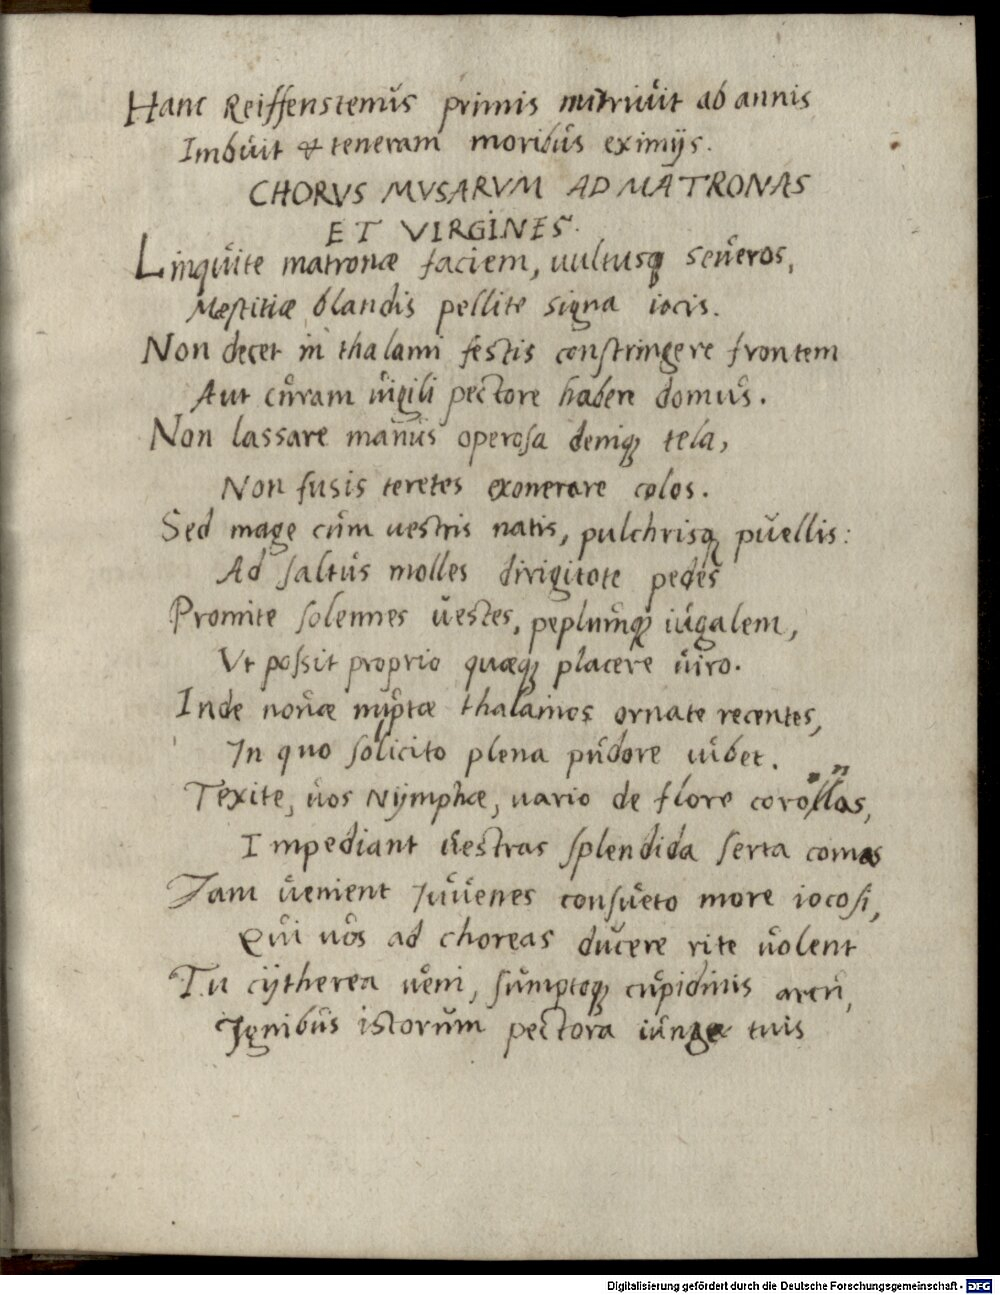 Hanc Reiffenstenius primis nutriuit ab annis
Imbuit & teneram moribus eximijs.
CHORVS MVSARVM AD MATRONAS
ET VIRGINES.
Linquite matronæ faciem, uultusq seueros,
Mæstitiæ blandis pellite signa iocis.
Non decet in thalami festis constringere frontem
Aut curam uigili pectore habere domus.
Non lassare manus operosa deniq tela,
Non fusis teretes exonerare colos.
Sed mage cum uestris natis, pulchrisq puellis:
Ad saltus molles dirigitote pedes
Promite solennes uestes, peplumq iugalem,
Vt possit proprio quæq placere uiro.
Inde nouæ nuptæ thalamos ornate recentes,
In quo solicito plena pudore iubet.
Texite, uos Nymphæ, uario de flore corollas,
Impediant uestras splendida serta comas
Iam uenient Iuuenes consueto more iocosi,
Qui uos ad choreas ducere rite uolent
Tu cytherea ueni, sumptoq cupidinis arcu,
Ignibus istorum pectora iunge tuis
Digitalisierung gefördert durch die Deutsche Forschungsgemeinschaft - DFG